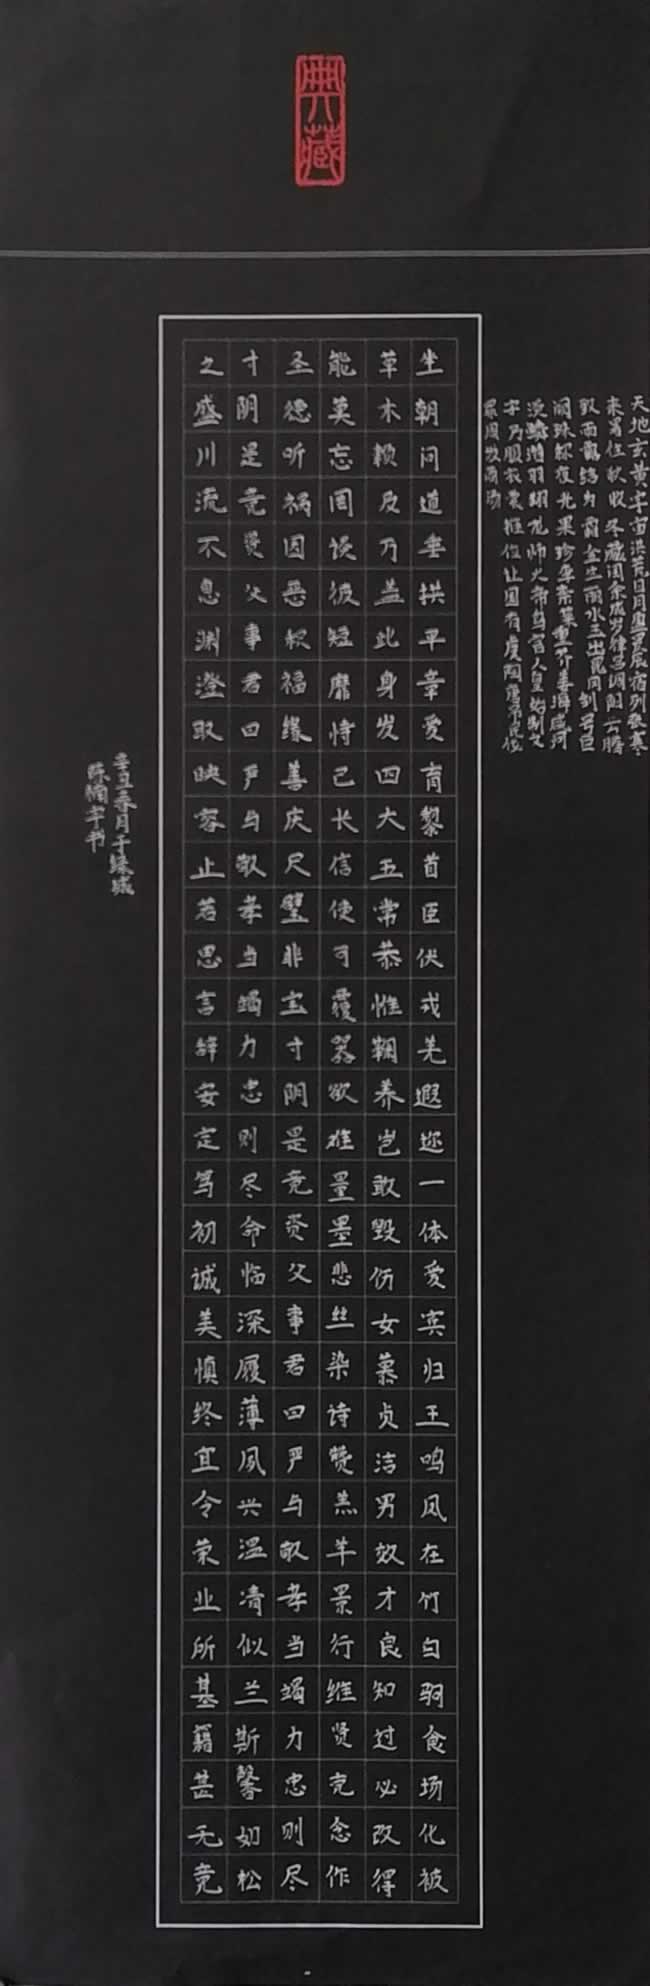 典藏
天地玄黄宇宙洪荒日月盈昃辰宿列张寒
来暑往秋收冬藏闰余成岁律吕调阳云腾
致雨露结为霜金生丽水玉出昆冈剑号巨
阙珠称夜光果珍李柰菜重芥姜海咸河
淡鳞潜羽翔龙师火帝鸟官人皇始制文
字乃服衣裳推位让国有虞陶唐吊民伐
罪周发商汤
坐朝问道垂拱平章爱育黎首臣伏戎羌遐迩一体爱宾归王鸣凤在竹白驹食场化被
草木赖及万盖此身发四大五常恭惟鞠养岂敢毁伤女慕贞洁男效才良知过必改得
能莫忘罔谈彼短靡恃己长信使可覆器欲难量墨悲丝染诗赞羔羊景行维贤克念作
圣德听祸因恶积福缘善庆尺璧非宝寸阴是竞资父事君曰严与敬孝当竭力忠则尽
寸阴是竞资父事君曰严与敬孝当竭力忠则尽命临深履薄夙兴温凊似兰斯馨如松
之盛川流不息渊澄取映容止若思言辞安定笃初诚美慎终宜令荣业所基籍甚无竟
辛丑春月于绿城
陈楠字书